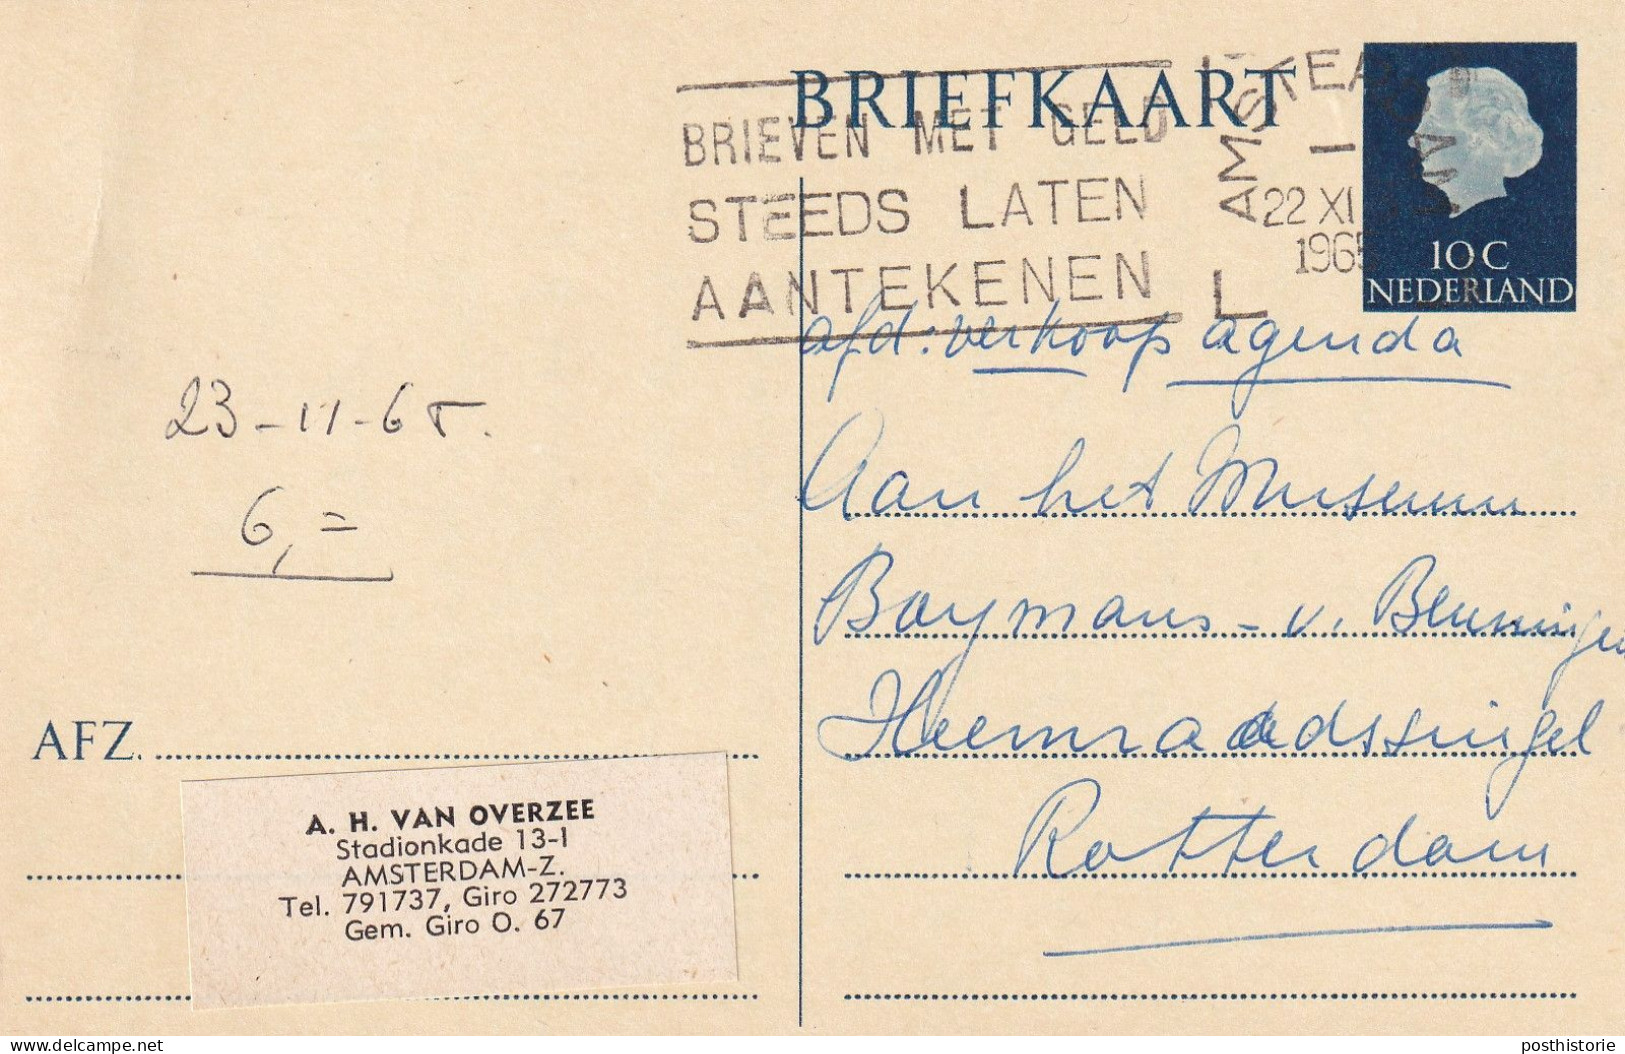 BRIEFKAART
BRIEVEN MET GELD
STEEDS LATEN
AANTEKENEN
AMSTERDAM
22 XI
1965
L
10 C
NEDERLAND
afd: verkoop agenda
Aan het Museum
Boymans - v. Beuningen
Heemraadssingel
Rotterdam
23-11-65.
6,=
AFZ.
A. H. VAN OVERZEE
Stadionkade 13-I
AMSTERDAM-Z.
Tel. 791737, Giro 272773
Gem. Giro O. 67
delcampe.net
posthistorie